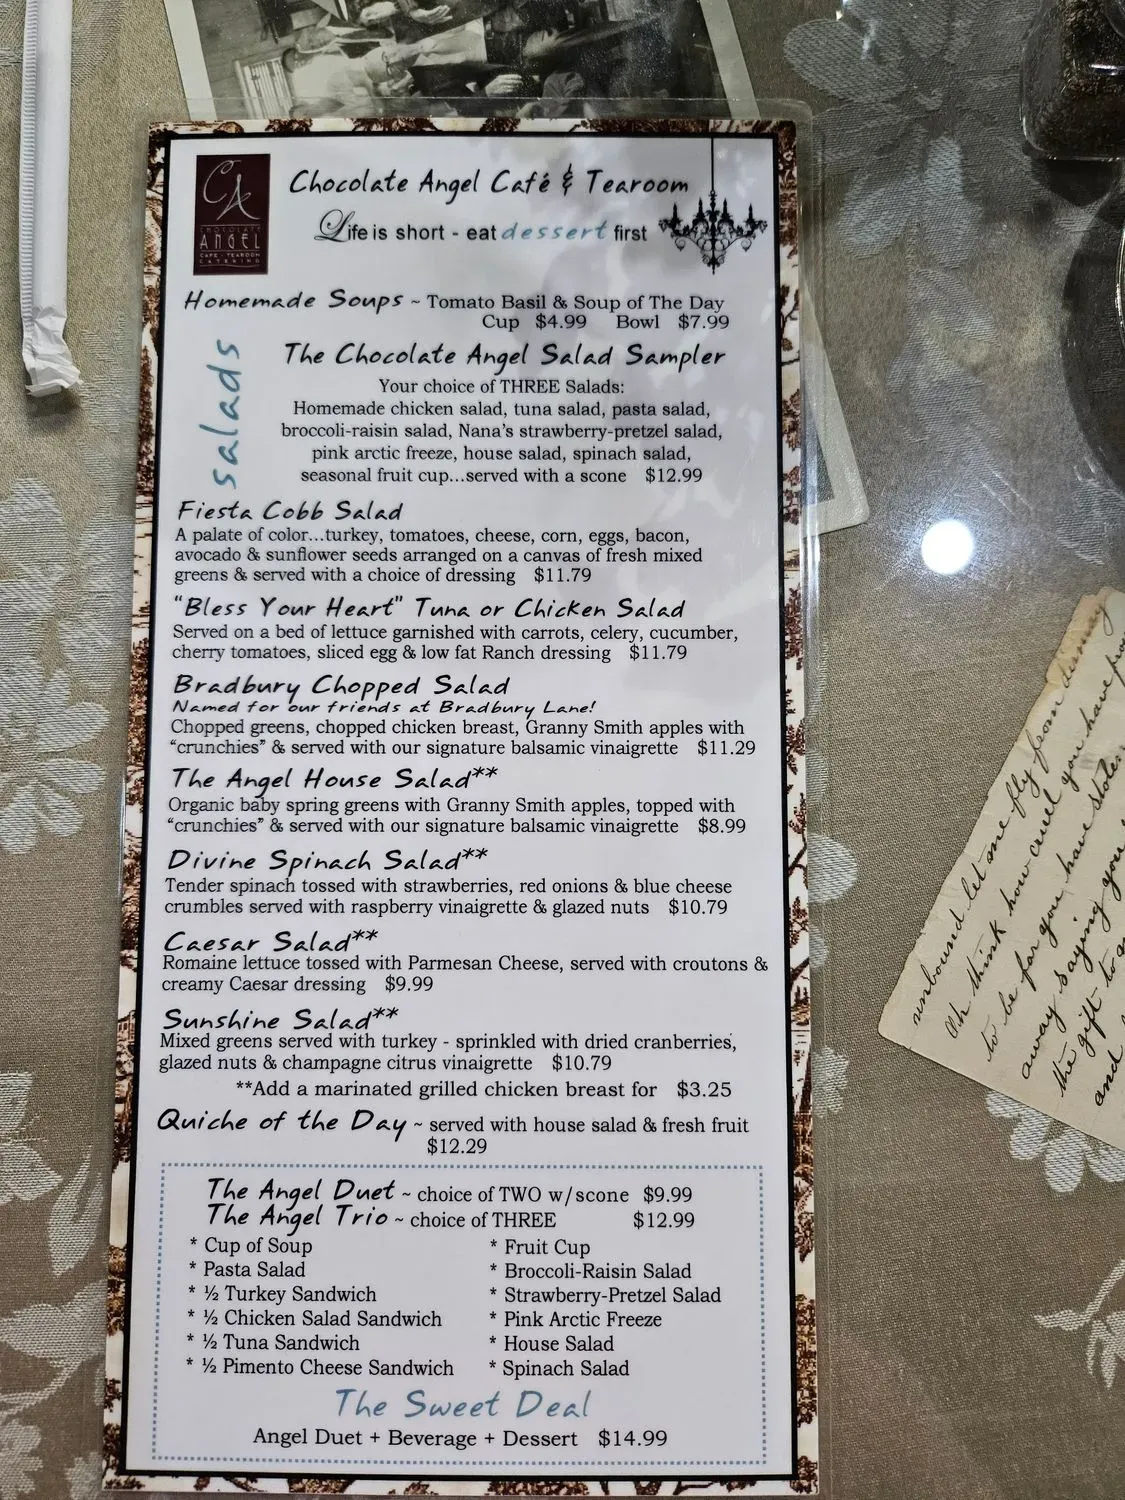 CA
CHOCOLATE
ANGEL
CAFE · TEAROOM
CATERING
Chocolate Angel Café & Tearoom
Life is short - eat dessert first
Homemade Soups ~ Tomato Basil & Soup of The Day
Cup $4.99 Bowl $7.99
salads
The Chocolate Angel Salad Sampler
Your choice of THREE Salads:
Homemade chicken salad, tuna salad, pasta salad,
broccoli-raisin salad, Nana's strawberry-pretzel salad,
pink arctic freeze, house salad, spinach salad,
seasonal fruit cup...served with a scone $12.99
Fiesta Cobb Salad
A palate of color...turkey, tomatoes, cheese, corn, eggs, bacon,
avocado & sunflower seeds arranged on a canvas of fresh mixed
greens & served with a choice of dressing $11.79
"Bless Your Heart" Tuna or Chicken Salad
Served on a bed of lettuce garnished with carrots, celery, cucumber,
cherry tomatoes, sliced egg & low fat Ranch dressing $11.79
Bradbury Chopped Salad
Named for our friends at Bradbury Lane!
Chopped greens, chopped chicken breast, Granny Smith apples with
"crunchies" & served with our signature balsamic vinaigrette $11.29
The Angel House Salad**
Organic baby spring greens with Granny Smith apples, topped with
"crunchies" & served with our signature balsamic vinaigrette $8.99
Divine Spinach Salad**
Tender spinach tossed with strawberries, red onions & blue cheese
crumbles served with raspberry vinaigrette & glazed nuts $10.79
Caesar Salad**
Romaine lettuce tossed with Parmesan Cheese, served with croutons &
creamy Caesar dressing $9.99
Sunshine Salad**
Mixed greens served with turkey - sprinkled with dried cranberries,
glazed nuts & champagne citrus vinaigrette $10.79
**Add a marinated grilled chicken breast for $3.25
Quiche of the Day ~ served with house salad & fresh fruit
$12.29
The Angel Duet ~ choice of TWO w/scone $9.99
The Angel Trio ~ choice of THREE $12.99
* Cup of Soup
* Pasta Salad
* ½ Turkey Sandwich
* ½ Chicken Salad Sandwich
* ½ Tuna Sandwich
* ½ Pimento Cheese Sandwich
* Fruit Cup
* Broccoli-Raisin Salad
* Strawberry-Pretzel Salad
* Pink Arctic Freeze
* House Salad
* Spinach Salad
The Sweet Deal
Angel Duet + Beverage + Dessert $14.99
unbound let me fly from
Oh think how cruel you have
to be for you have stolen
away saying you
the gift to
and